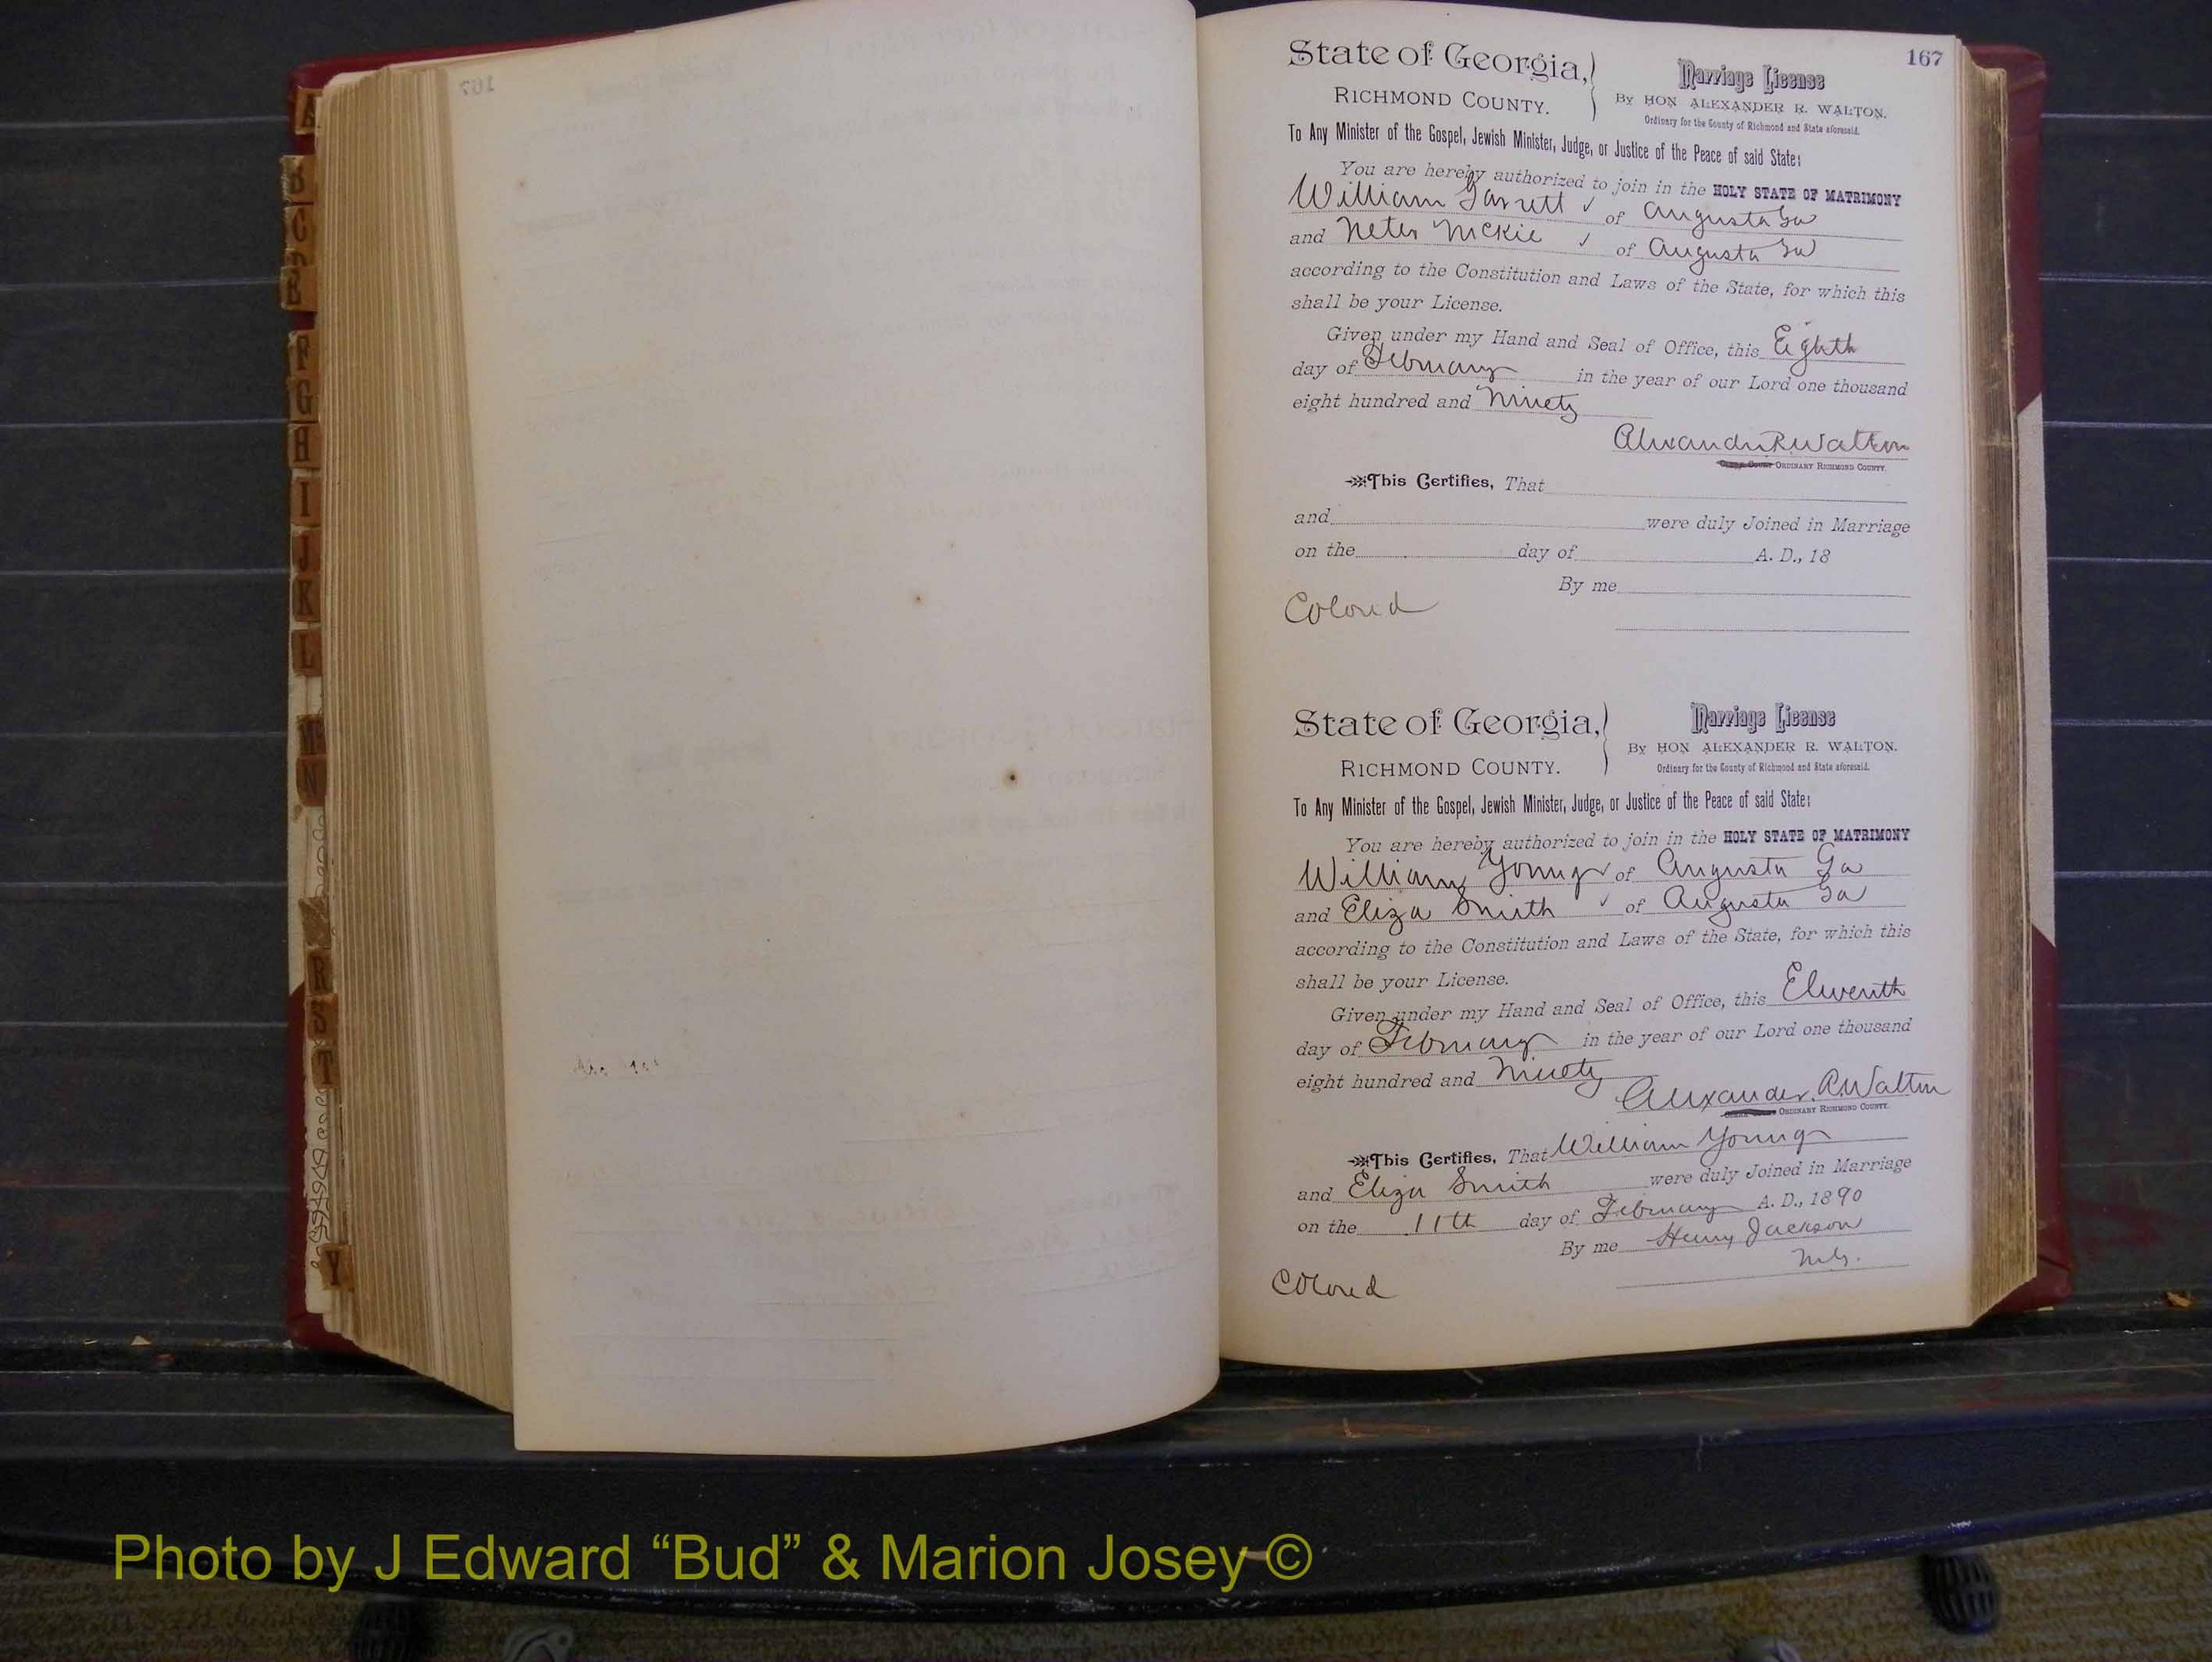 167
State of Georgia,
RICHMOND COUNTY.
Marriage License
By HON ALEXANDER R. WALTON.
Ordinary for the County of Richmond and State aforesaid.
To Any Minister of the Gospel, Jewish Minister, Judge, or Justice of the Peace of said State:
You are hereby authorized to join in the HOLY STATE OF MATRIMONY
William Garrett ✓ of Augusta Ga
and McKie ✓ of Augusta Ga
according to the Constitution and Laws of the State, for which this
shall be your License.
Given under my Hand and Seal of Office, this Eighth
day of February in the year of our Lord one thousand
eight hundred and Ninety
Alexander R. Walton
ORDINARY RICHMOND COUNTY.
This Certifies, That
and were duly Joined in Marriage
on the day of A. D., 18
By me
Colored
State of Georgia,
RICHMOND COUNTY.
Marriage License
By HON ALEXANDER R. WALTON.
Ordinary for the County of Richmond and State aforesaid.
To Any Minister of the Gospel, Jewish Minister, Judge, or Justice of the Peace of said State:
You are hereby authorized to join in the HOLY STATE OF MATRIMONY
William Young ✓ of Augusta Ga
and Eliza Smith ✓ of Augusta Ga
according to the Constitution and Laws of the State, for which this
shall be your License.
Given under my Hand and Seal of Office, this Eleventh
day of February in the year of our Lord one thousand
eight hundred and Ninety
Alexander R. Walton
ORDINARY RICHMOND COUNTY.
This Certifies, That William Young
and Eliza Smith were duly Joined in Marriage
on the 11th day of February A. D., 1890
By me Henry Jackson
M.G.
Colored
A
B
C
E
F
G
H
I
J
K
L
M
N
R
S
T
Y
Photo by J Edward “Bud” & Marion Josey ©